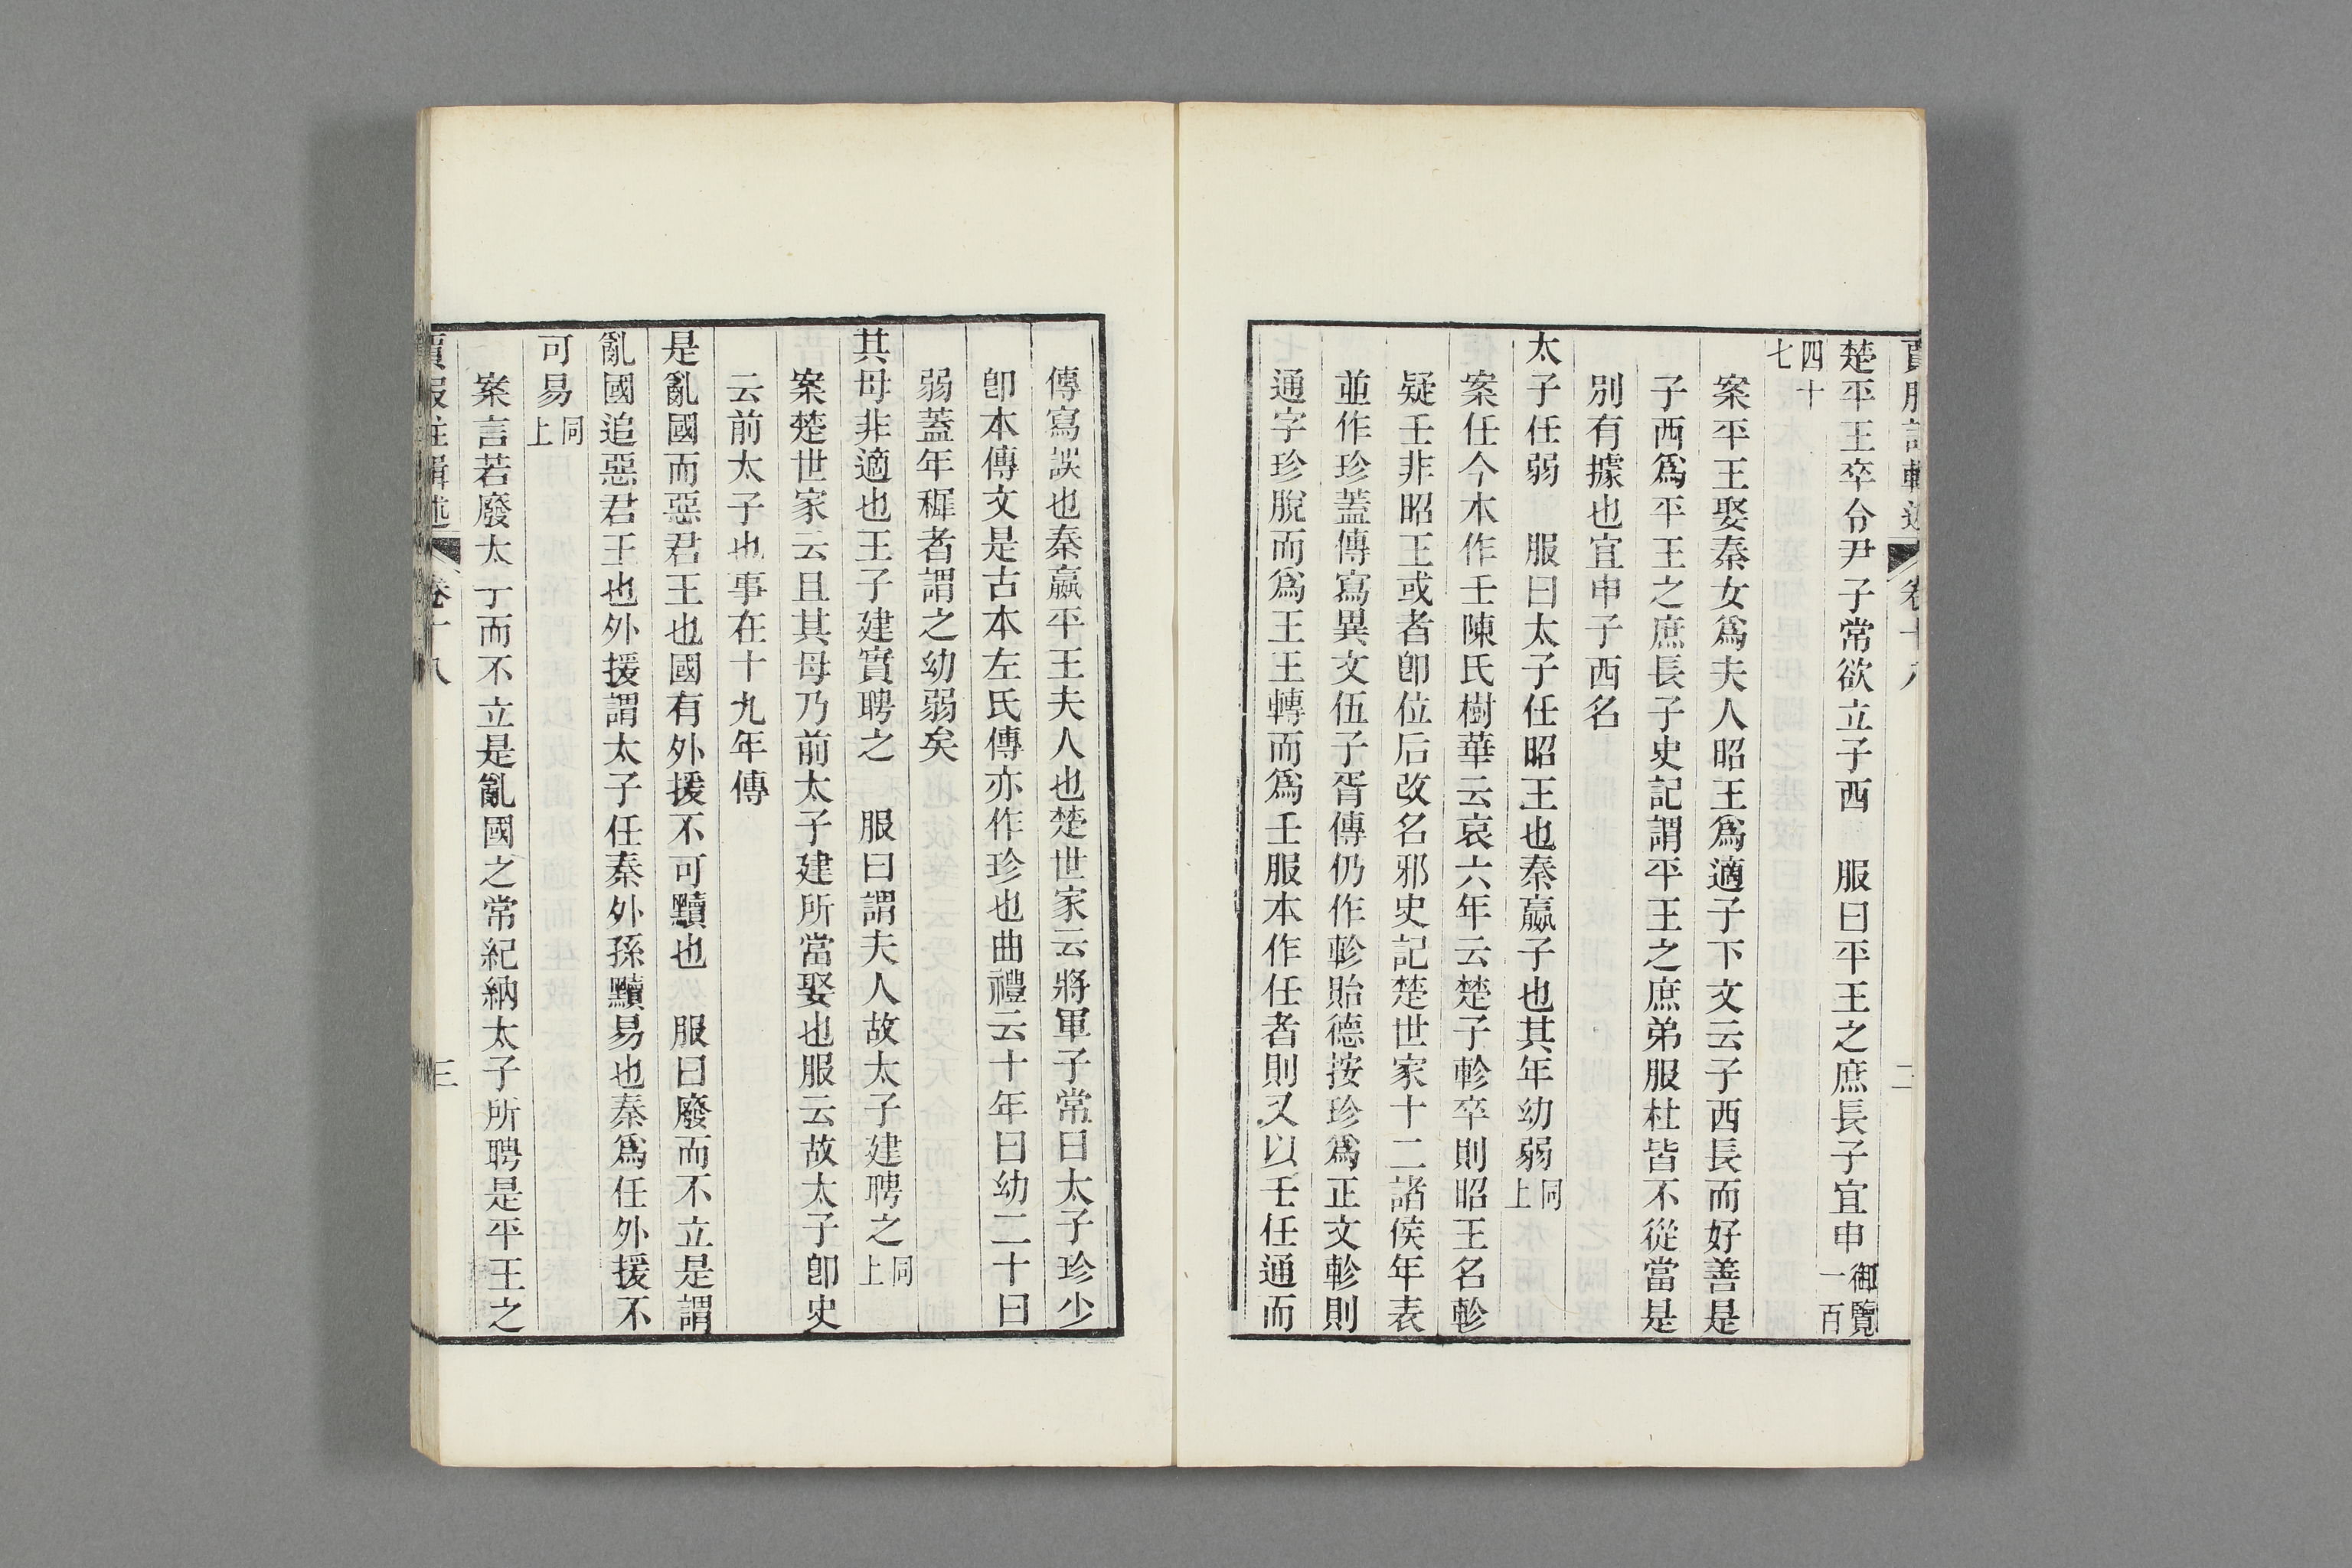 賈服註輯述 卷十八 二
楚平王卒令尹子常欲立子西 服曰平王之庶長子宜申御覽一百
四十七
案平王娶秦女爲夫人昭王爲適子下文云子西長而好善是
子西爲平王之庶長子史記謂平王之庶弟服杜皆不從當是
別有據也宜申子西名
太子任弱 服曰太子任昭王也秦嬴子也其年幼弱同上
案任今本作壬陳氏樹華云哀六年云楚子軫卒則昭王名軫
疑壬非昭王或者卽位后改名邪史記楚世家十二諸侯年表
並作珍蓋傳寫異文伍子胥傳仍作軫貽德按珍爲正文軫則
通字珍脫而爲王王轉而爲壬服本作任者則又以壬任通而
傳寫誤也秦嬴平王夫人也楚世家云將軍子常曰太子珍少
卽本傳文是古本左氏傳亦作珍也曲禮云十年曰幼二十曰
弱蓋年穉者謂之幼弱矣
其母非適也王子建實聘之 服曰謂夫人故太子建聘之同上
案楚世家云且其母乃前太子建所當娶也服云故太子卽史
云前太子也事在十九年傳
是亂國而惡君王也國有外援不可黷也 服曰廢而不立是謂
亂國追惡君王也外援謂太子任秦外孫黷易也秦爲任外援不
可易同上
案言若廢太子而不立是亂國之常紀納太子所聘是平王之
賈服註輯述 卷十八 三